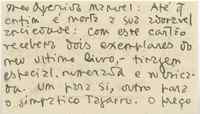 meu querido Manuel: Até q
enfim é morta a sua adorável
ansiedade: com este cartão
receberá dois exemplares do
meu último livro, - tiragem
especial, numerada e rubrica-
da. Um para si, outro para
o simpático Tagarro. O preço